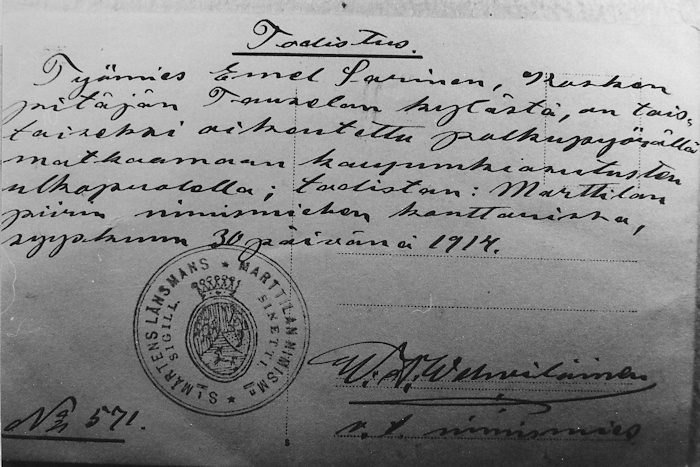 Todistus.
Työmies Emel Sarinen, Kosken
pitäjän Tauselan kylästä, on tois-
taiseksi oikeutettu polkupyörällä
matkaamaan kaupunkiasutusten
ulkopuolella; todistan: Marttilan
piirin nimismiehen konttorissa,
syyskuun 30 päivänä 1914.
S:T MÅRTENS LÄNSMANS SIGILL
MARTTILAN NIMISM:N SINETTI
Wehviläinen
v. t. nimismies
No 571.